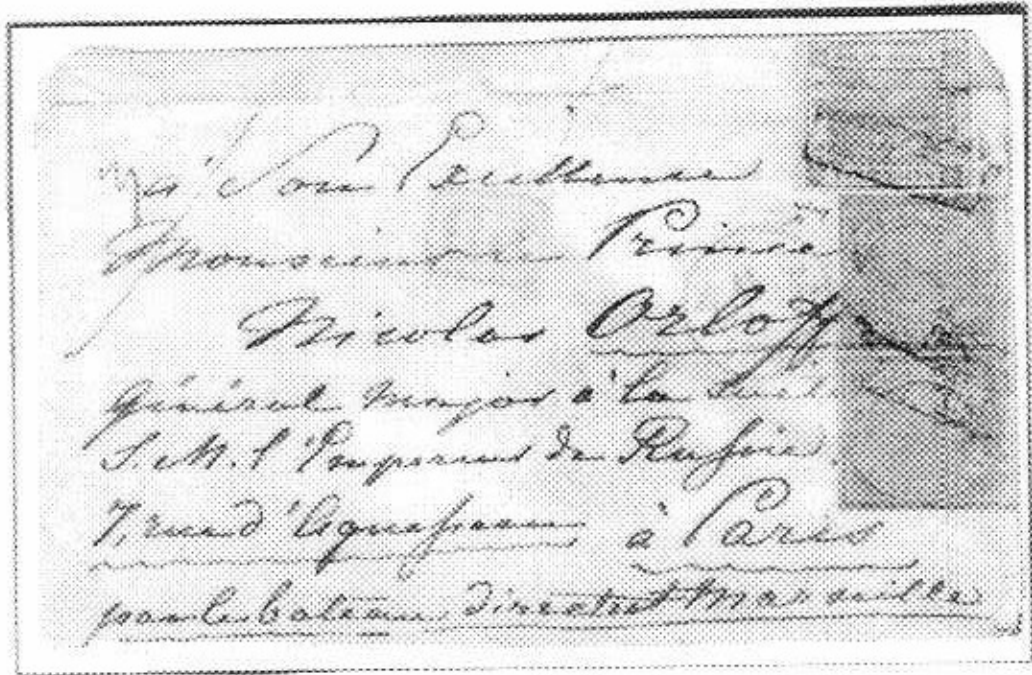 à Son Excellence
Monsieur le Prince
Nicolas Orloff
général major à la suite
S. M. l'Empereur de Russie
7, rue d'Aguesseau à Paris
par le bateau direct et Marseille